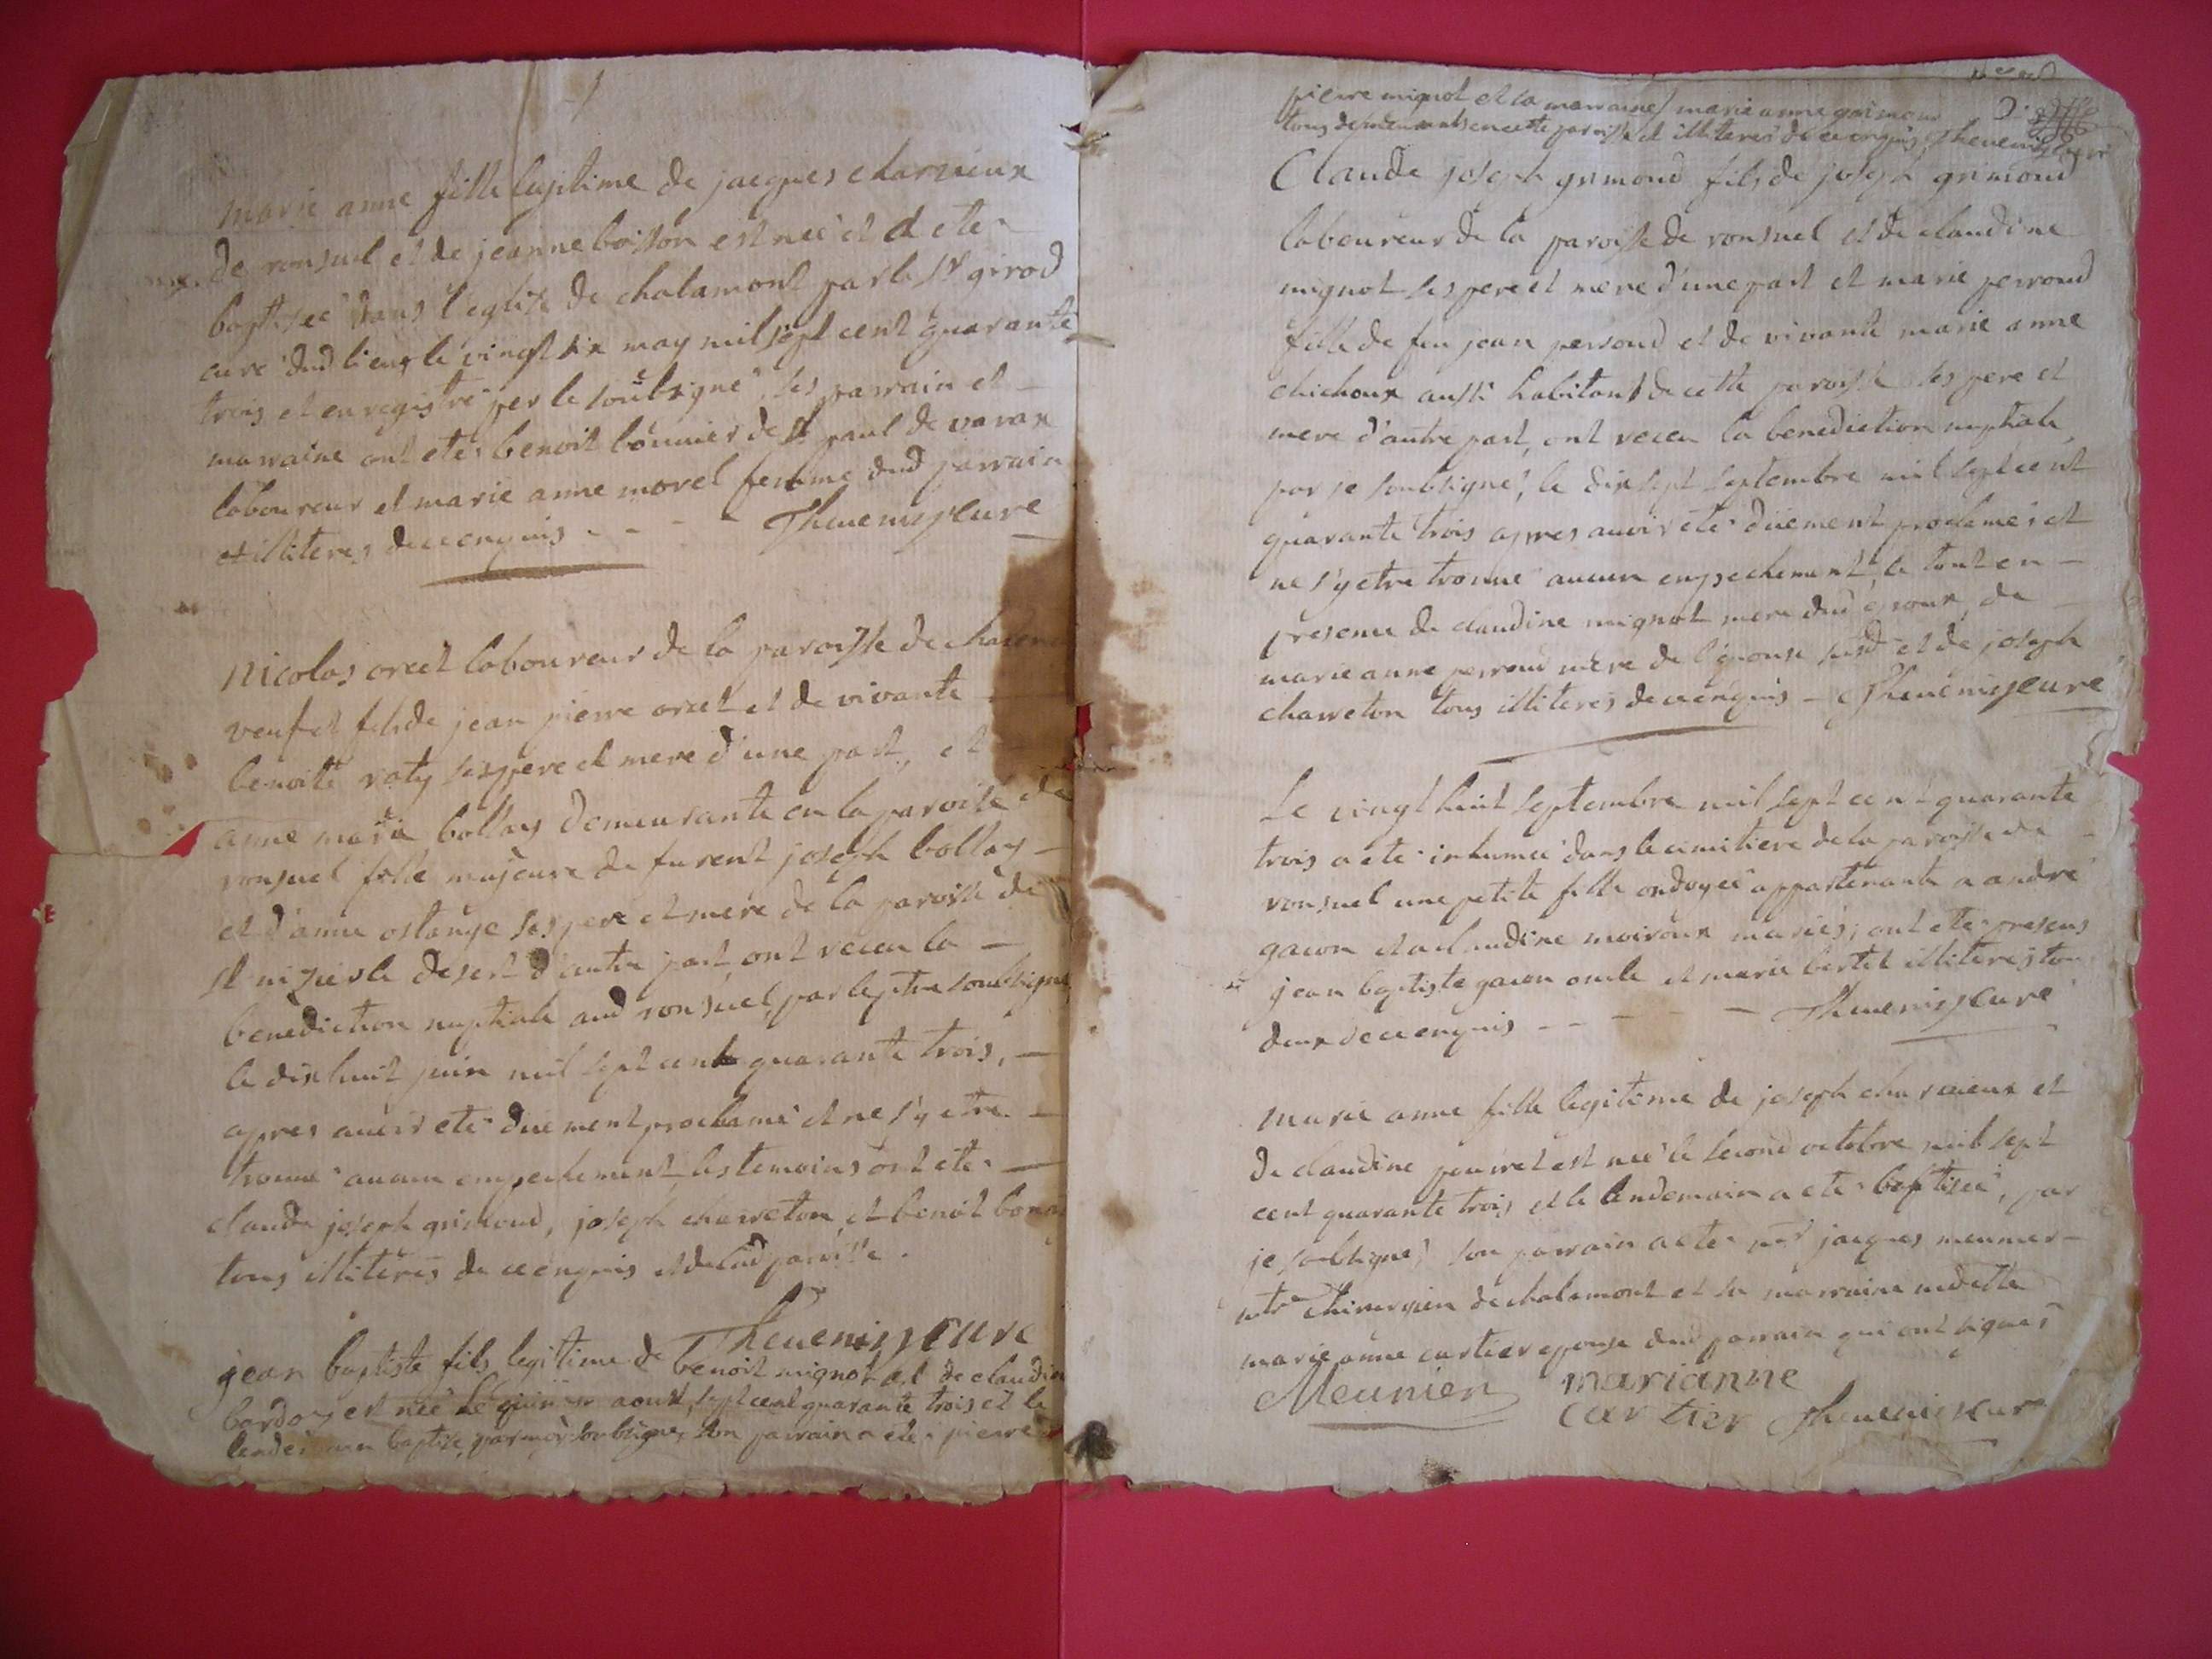 marie anne fille legitime de jacques charvieux
de ronsuel et de jeanne boisson est neé et a eté
baptiseé dans l'eglise de chalamont par le sr girod
curé dud lieu, le vingt six may mil sept cent quarante
trois et enregistré per le soubsigné, ses parrain et
marraine ont eté benoit bonnier de st paul de varax
laboureur et marie anne morel femme dud parrain
et illiteres de ce enquis Theuenis, Cure
nicolas orcet laboureur de la paroisse de
veuf et fils de jean pierre orcet et de vivante
benoite raty ses pere et mere d'une part, et
anne marie bollay demeurante en la paroisse de
ronsuel fille majeure de furent joseph bollay
et d'anne ostange ses pere et mere de la paroisse de
st nizier le desert d'autre part ont receu la
benediction nuptiale aud ronsuel, par le ptre soubsigne
le dix huit juin mil sept cent quarante trois,
apres auoir eté düement proclamé et ne s'y etre
trouué aucun empechement, les temoins ont eté
claude joseph grimoud, joseph charreton, et benoit
tous illiteres de ce enquis et de lad paroisse.
Theuenis, cure
jean baptiste fils legitime de benoit mignot et de claudine
bardoy est né le aoust, sept cent quarante trois et le
lendemain baptisé, par moy soubsigne, son parrain a eté pierre
pierre mignot et sa marraine marie anne grimoud
tous demeurants en cette paroisse et illiteres de ce enquis, Theuenis, cure
Claude joseph grimoud fils de joseph grimoud
laboureur de la paroisse de ronsuel et de claudine
mignot ses pere et mere d'une part et marie perroud
fille de feu jean perroud et de vivante marie anne
chichoux aussi habitans de cette paroisse ses pere et
mere d'autre part, ont receu la benediction nuptiale
par je soubsigné, le dix sept septembre mil sept cent
quarante trois apres auoir eté düement proclamés et
ne s'y etre trouué aucun empechement, le tout en
presence de claudine mignot mere dud epoux, de
marie anne perroud mere de l'epouse susd et de joseph
charreton tous illiteres de ce enquis Theuenis, cure
Le vingt huit septembre mil sept cent quarante
trois a eté inhumeé dans le cimitiere de la paroisse de
ronsuel une petite fille ondoyeé appartenante a andré
gacon et a claudine moiroux mariés, ont eté presens
jean baptiste gacon oncle et marie bertet illiteres tous
deux de ce enquis Theuenis, Cure
marie anne fille legitime de joseph charvieux et
de claudine pouvret est neé le second octobre mil sept
cent quarante trois et le lendemain a eté baptiseé, par
je soubsigné, son parrain a eté jacques meunier
mtre chirurgien de chalamont et sa marraine
marie anne cartier epouse dud parrain qui ont signés
Meunier marianne
cartier Theuenis, cure